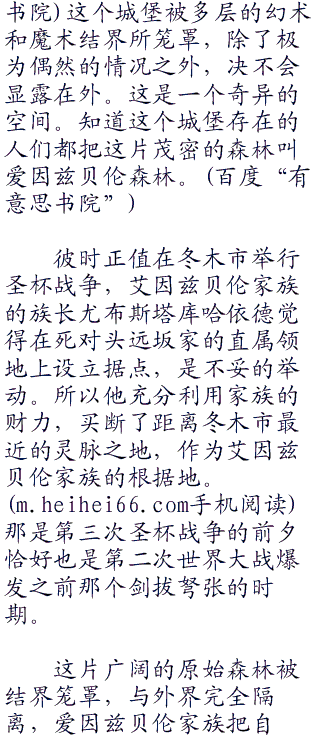 书院)这个城堡被多层的幻术
和魔术结界所笼罩，除了极
为偶然的情况之外，决不会
显露在外。这是一个奇异的
空间。知道这个城堡存在的
人们都把这片茂密的森林叫
爱因兹贝伦森林。(百度“有
意思书院”)
彼时正值在冬木市举行
圣杯战争，艾因兹贝伦家族
的族长尤布斯塔库哈依德觉
得在死对头远坂家的直属领
地上设立据点，是不妥的举
动。所以他充分利用家族的
财力，买断了距离冬木市最
近的灵脉之地，作为艾因兹
贝伦家族的根据地。
(m.heihei66.com手机阅读)
那是第三次圣杯战争的前夕
恰好也是第二次世界大战爆
发之前那个剑拔弩张的时
期。
这片广阔的原始森林被
结界笼罩，与外界完全隔
离，爱因兹贝伦家族把自